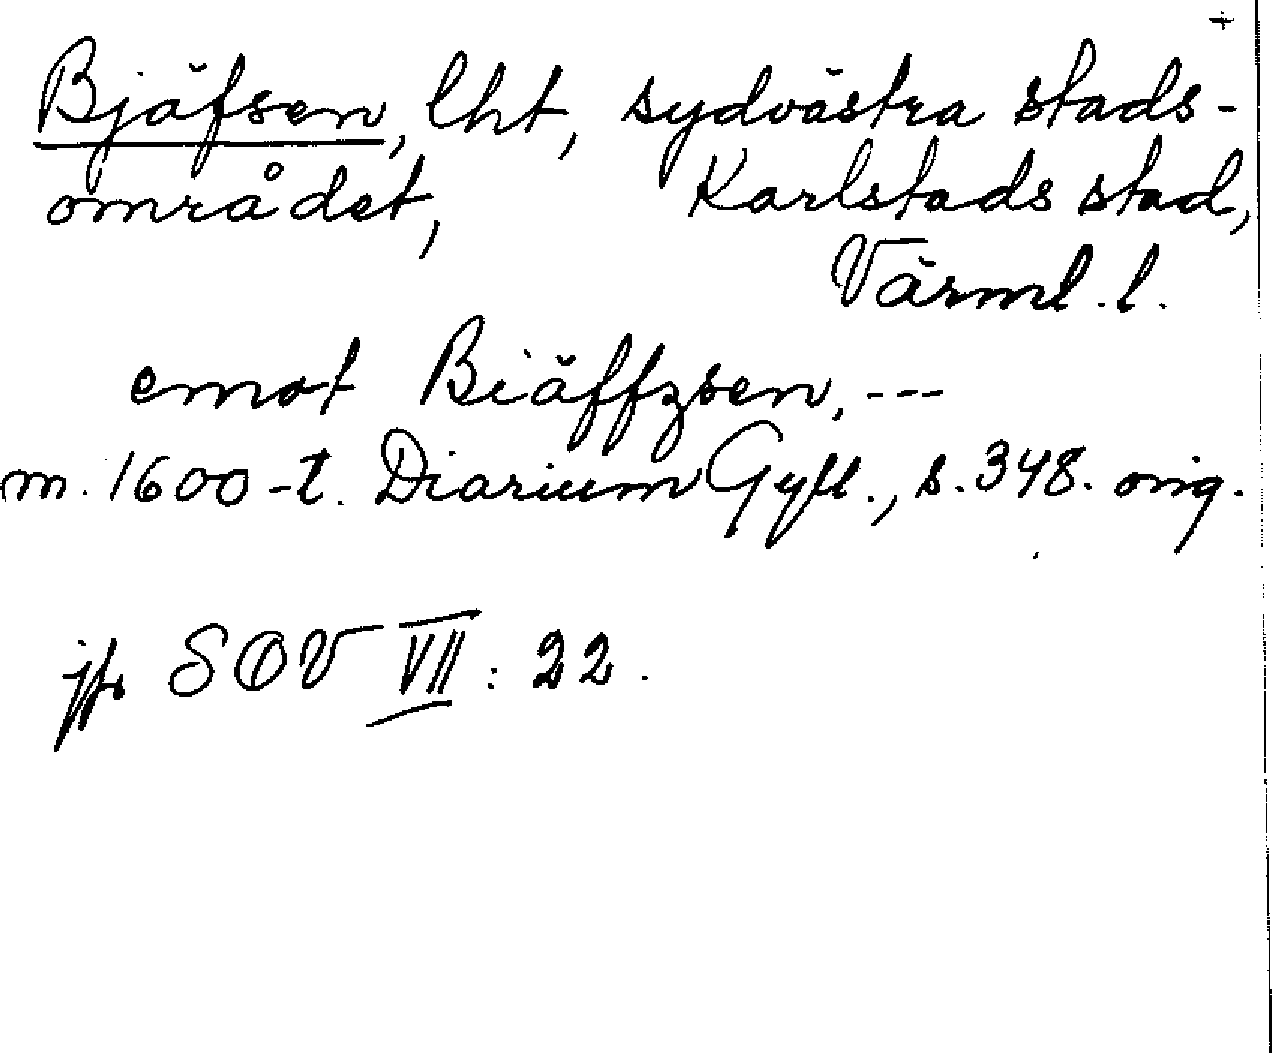 +
Bjäfsen, lht, sydvästra stads-
området, Karlstads stad,
Värml. l.
emot Biäffzsen, ---
m. 1600-t. Diarium Gyll., s. 348. orig.
jfr SOV VII: 22.